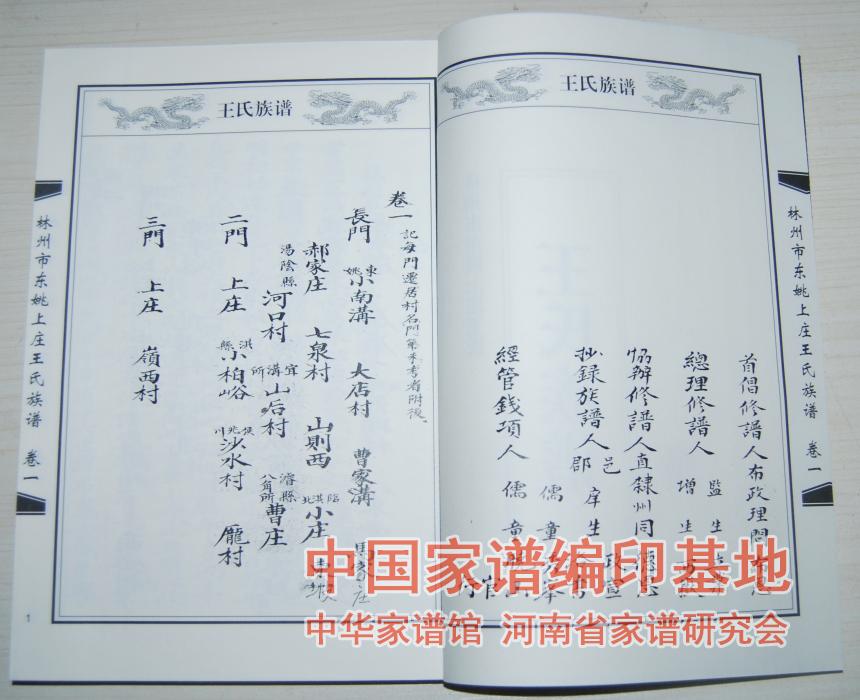 王氏族谱
林州市东姚上庄王氏族谱 卷一
首倡修譜人布政理問
總理修譜人 監生
增生
協辦修譜人直隸州同德
抄錄族譜人 邑庠生
郡
政宣
儒童
經管錢項人 儒童
王氏族谱
卷一 記每門遷居村名門第未考者附後
長門 東姚小南溝 大店村 曹家溝 馬家庄
郝家庄 七泉村 山則西 臨淇北小庄 東坡
湯陰縣河口村 宜溝所山后村 濬縣八角所曹庄
二門 上庄 淇縣小柏峪 侯兆川沙水村 龐村
三門 上庄 嶺西村
林州市东姚上庄王氏族谱 卷一
1
中国家谱编印基地
中华家谱馆 河南省家谱研究会